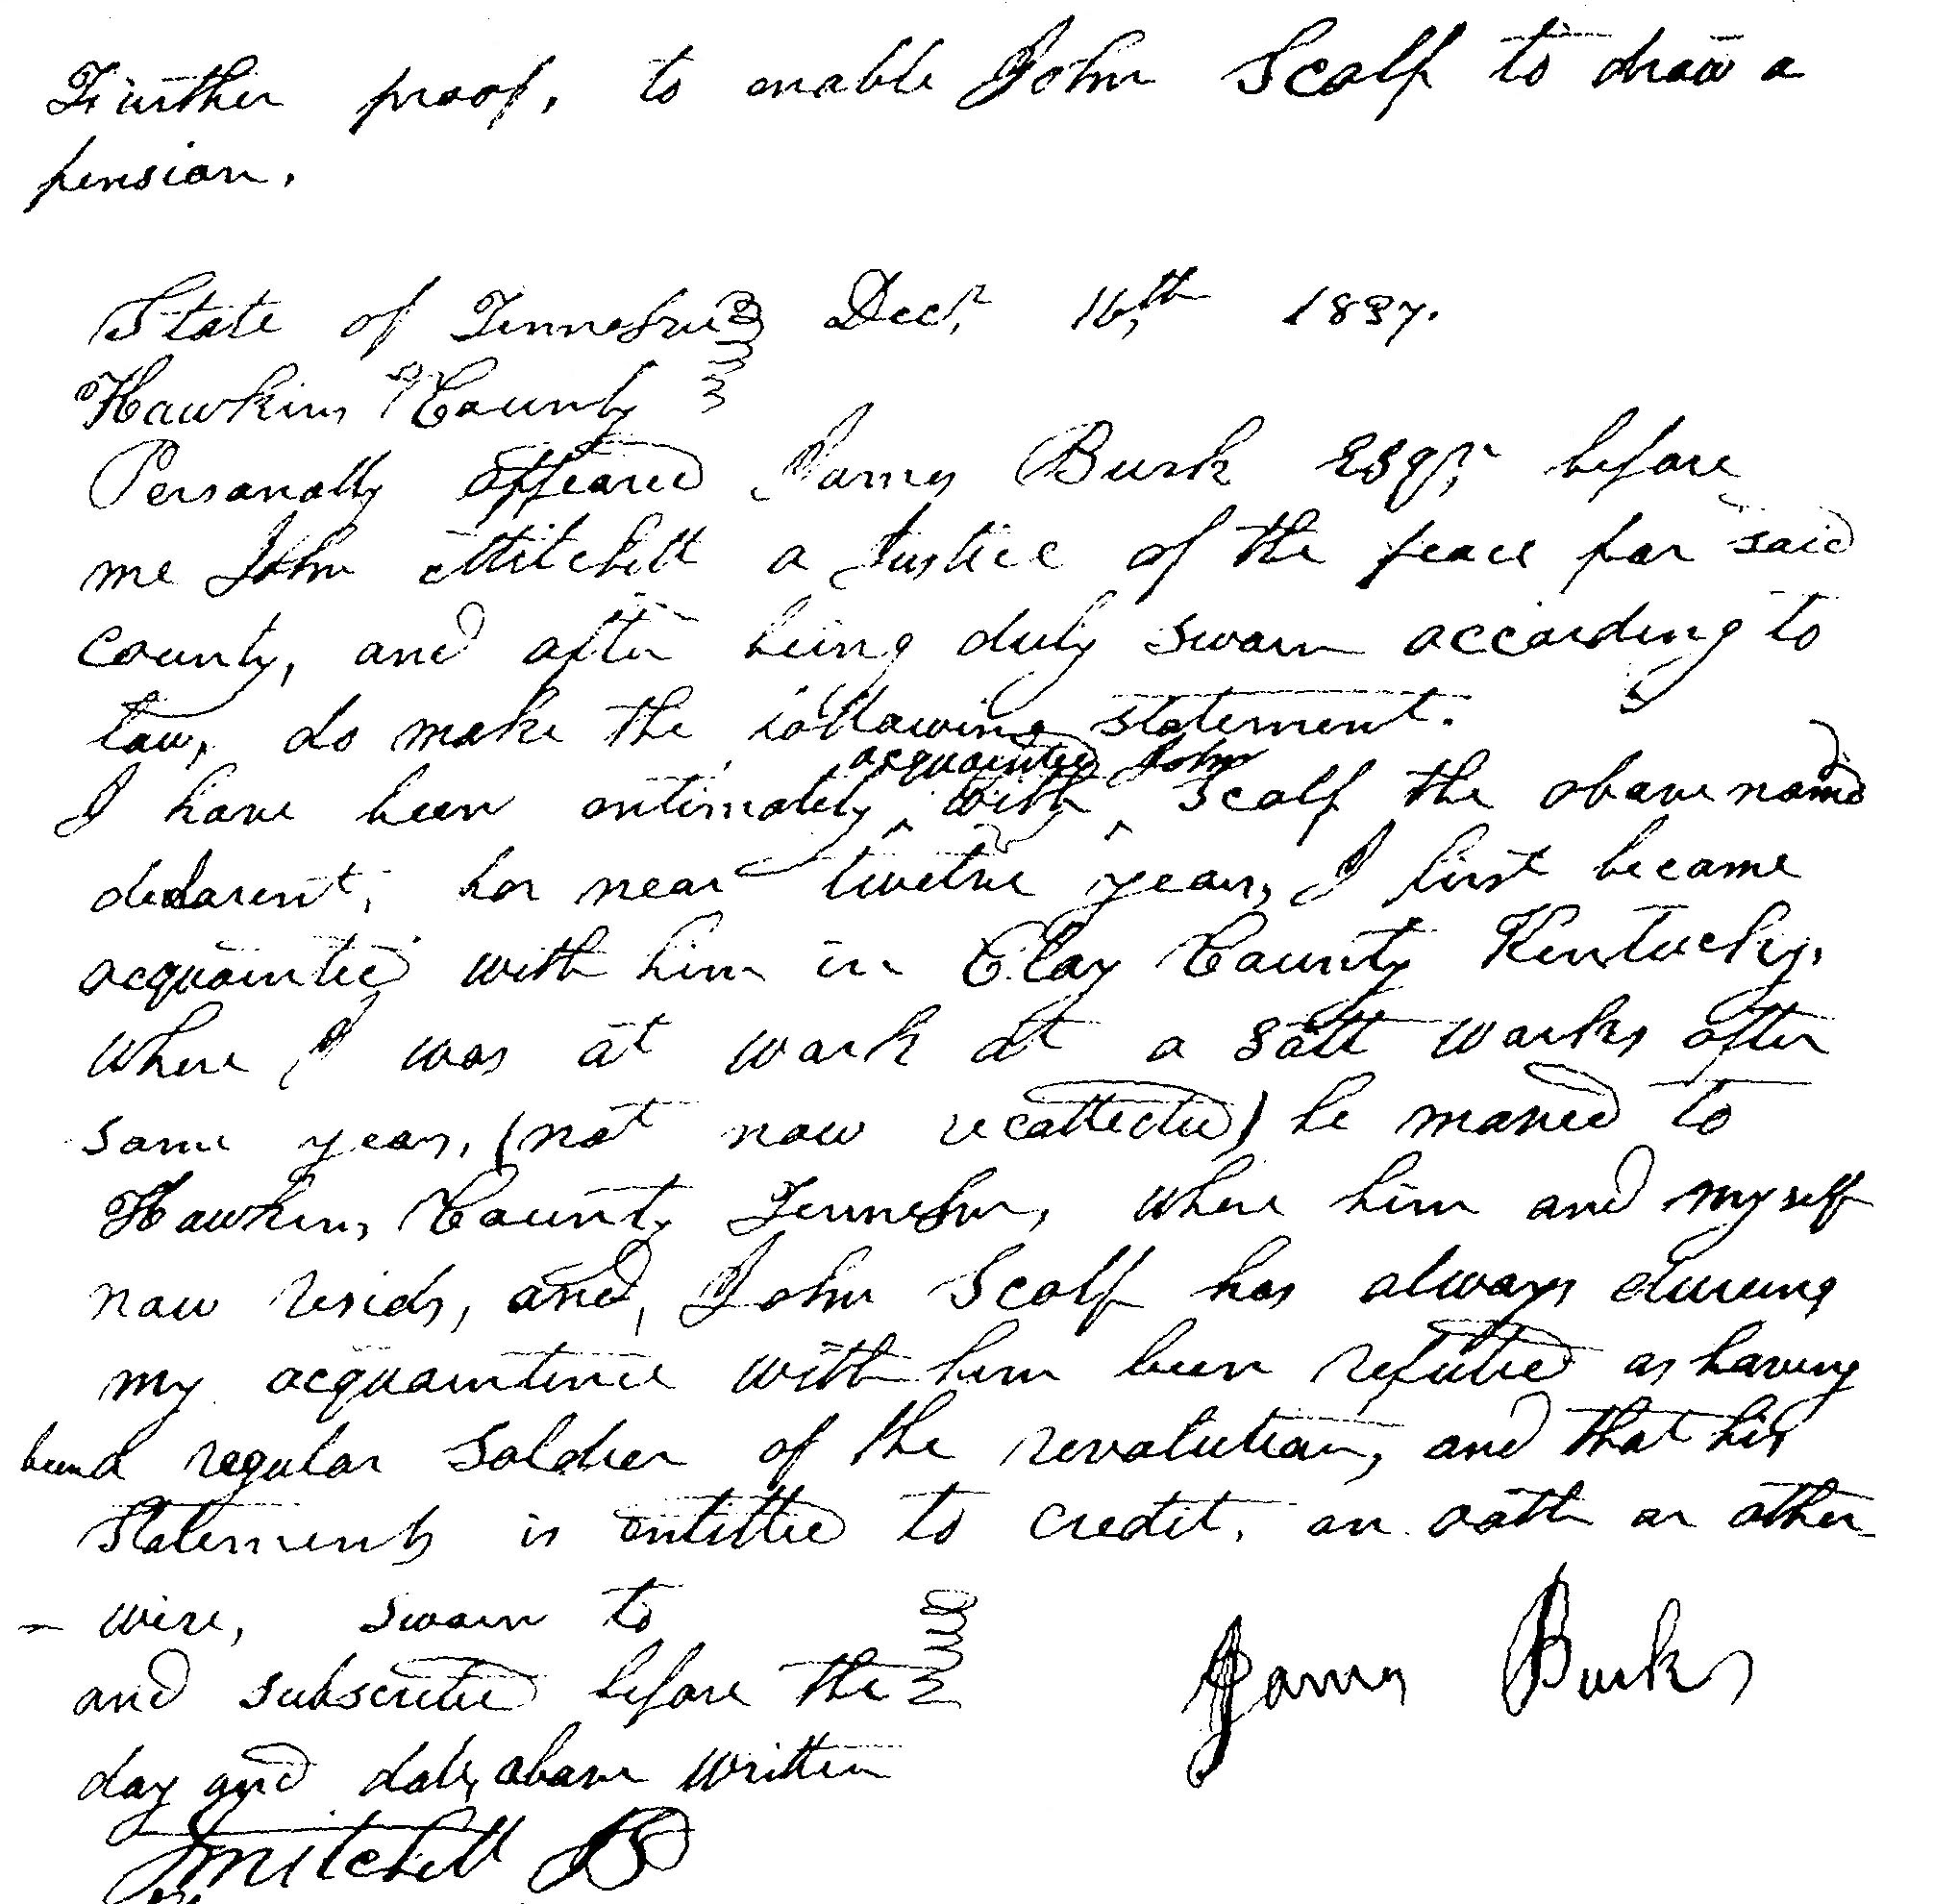 Further proof, to enable John Scalf to draw a
pension.
State of Tennessee Decr. 16th 1837.
Hawkins County
Personally appeared James Burk Esqr. before
me John Mitchell a Justice of the peace for said
county, and after being duly sworn according to
law, do make the following statement.
I have been intimately acquainted with John Scalf the above named
declarent, for near twelve years, I first became
acquainted with him in Clay County Kentucky,
where I was at work at a salt works after
some years, (not now recollected) he moved to
Hawkins County Tennessee, where him and myself
now resids, and, John Scalf has always during
my acquaintence with him been reputed as having
been a regular soldier of the revolution, and that his
statements is entitled to credit, on oath or other
- wise, sworn to
and subscribed before the
day and date above written
James Burk
Mitchell